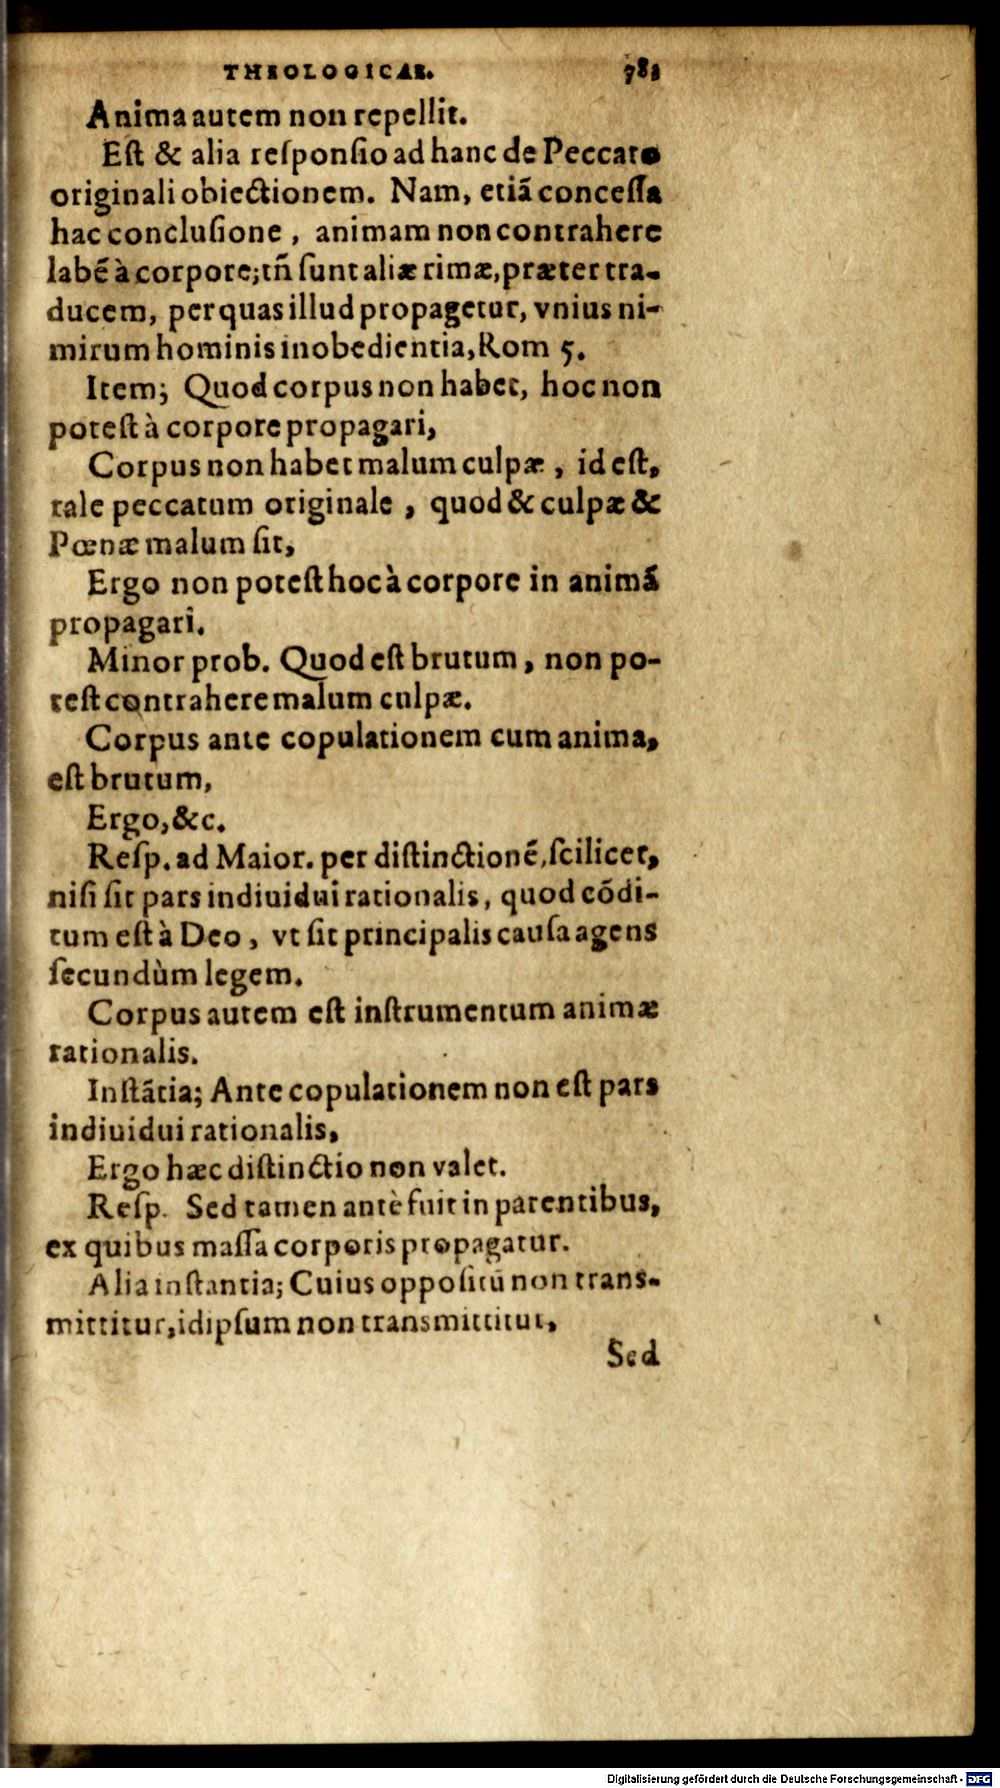 THEOLOGICAE. 781
Anima autem non repellit.
Eſt & alia reſponſio ad hanc de Peccato
originali obiectionem. Nam, etiã conceſſa
hac concluſione, animam non contrahere
labẽ à corpore; tñ ſunt aliæ rimæ, præter tra-
ducem, per quas illud propagetur, vnius ni-
mirum hominis inobedientia, Rom 5.
Item; Quod corpus non habet, hoc non
poteſt à corpore propagari,
Corpus non habet malum culpæ, id eſt,
tale peccatum originale, quod & culpæ &
Pœnæ malum ſit,
Ergo non poteſt hoc à corpore in animã
propagari.
Minor prob. Quod eſt brutum, non po-
teſt contrahere malum culpæ.
Corpus ante copulationem cum anima,
eſt brutum,
Ergo, &c.
Reſp. ad Maior. per diſtinctionẽ, ſcilicet,
niſi ſit pars indiuidui rationalis, quod cõdi-
tum eſt à Deo, vt ſit principalis cauſa agens
ſecundùm legem.
Corpus autem eſt inſtrumentum animæ
rationalis.
Inſtãtia; Ante copulationem non eſt pars
indiuidui rationalis,
Ergo hæc diſtinctio non valet.
Reſp. Sed tamen antè fuit in parentibus,
ex quibus maſſa corporis propagatur.
Alia inſtantia; Cuius oppoſitũ non trans-
mittitur, id ipſum non transmittitur,
Sed
Digitalisierung gefördert durch die Deutsche Forschungsgemeinschaft - DFG